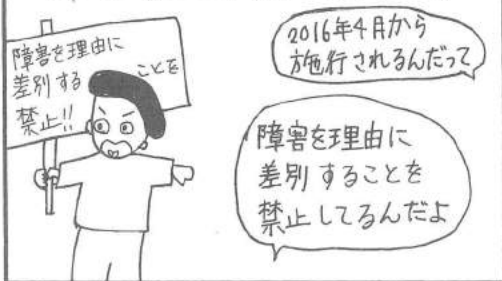 障害を理由に
差別することを
禁止!!
2016年4月から
施行されるんだって
障害を理由に
差別することを
禁止してるんだよ